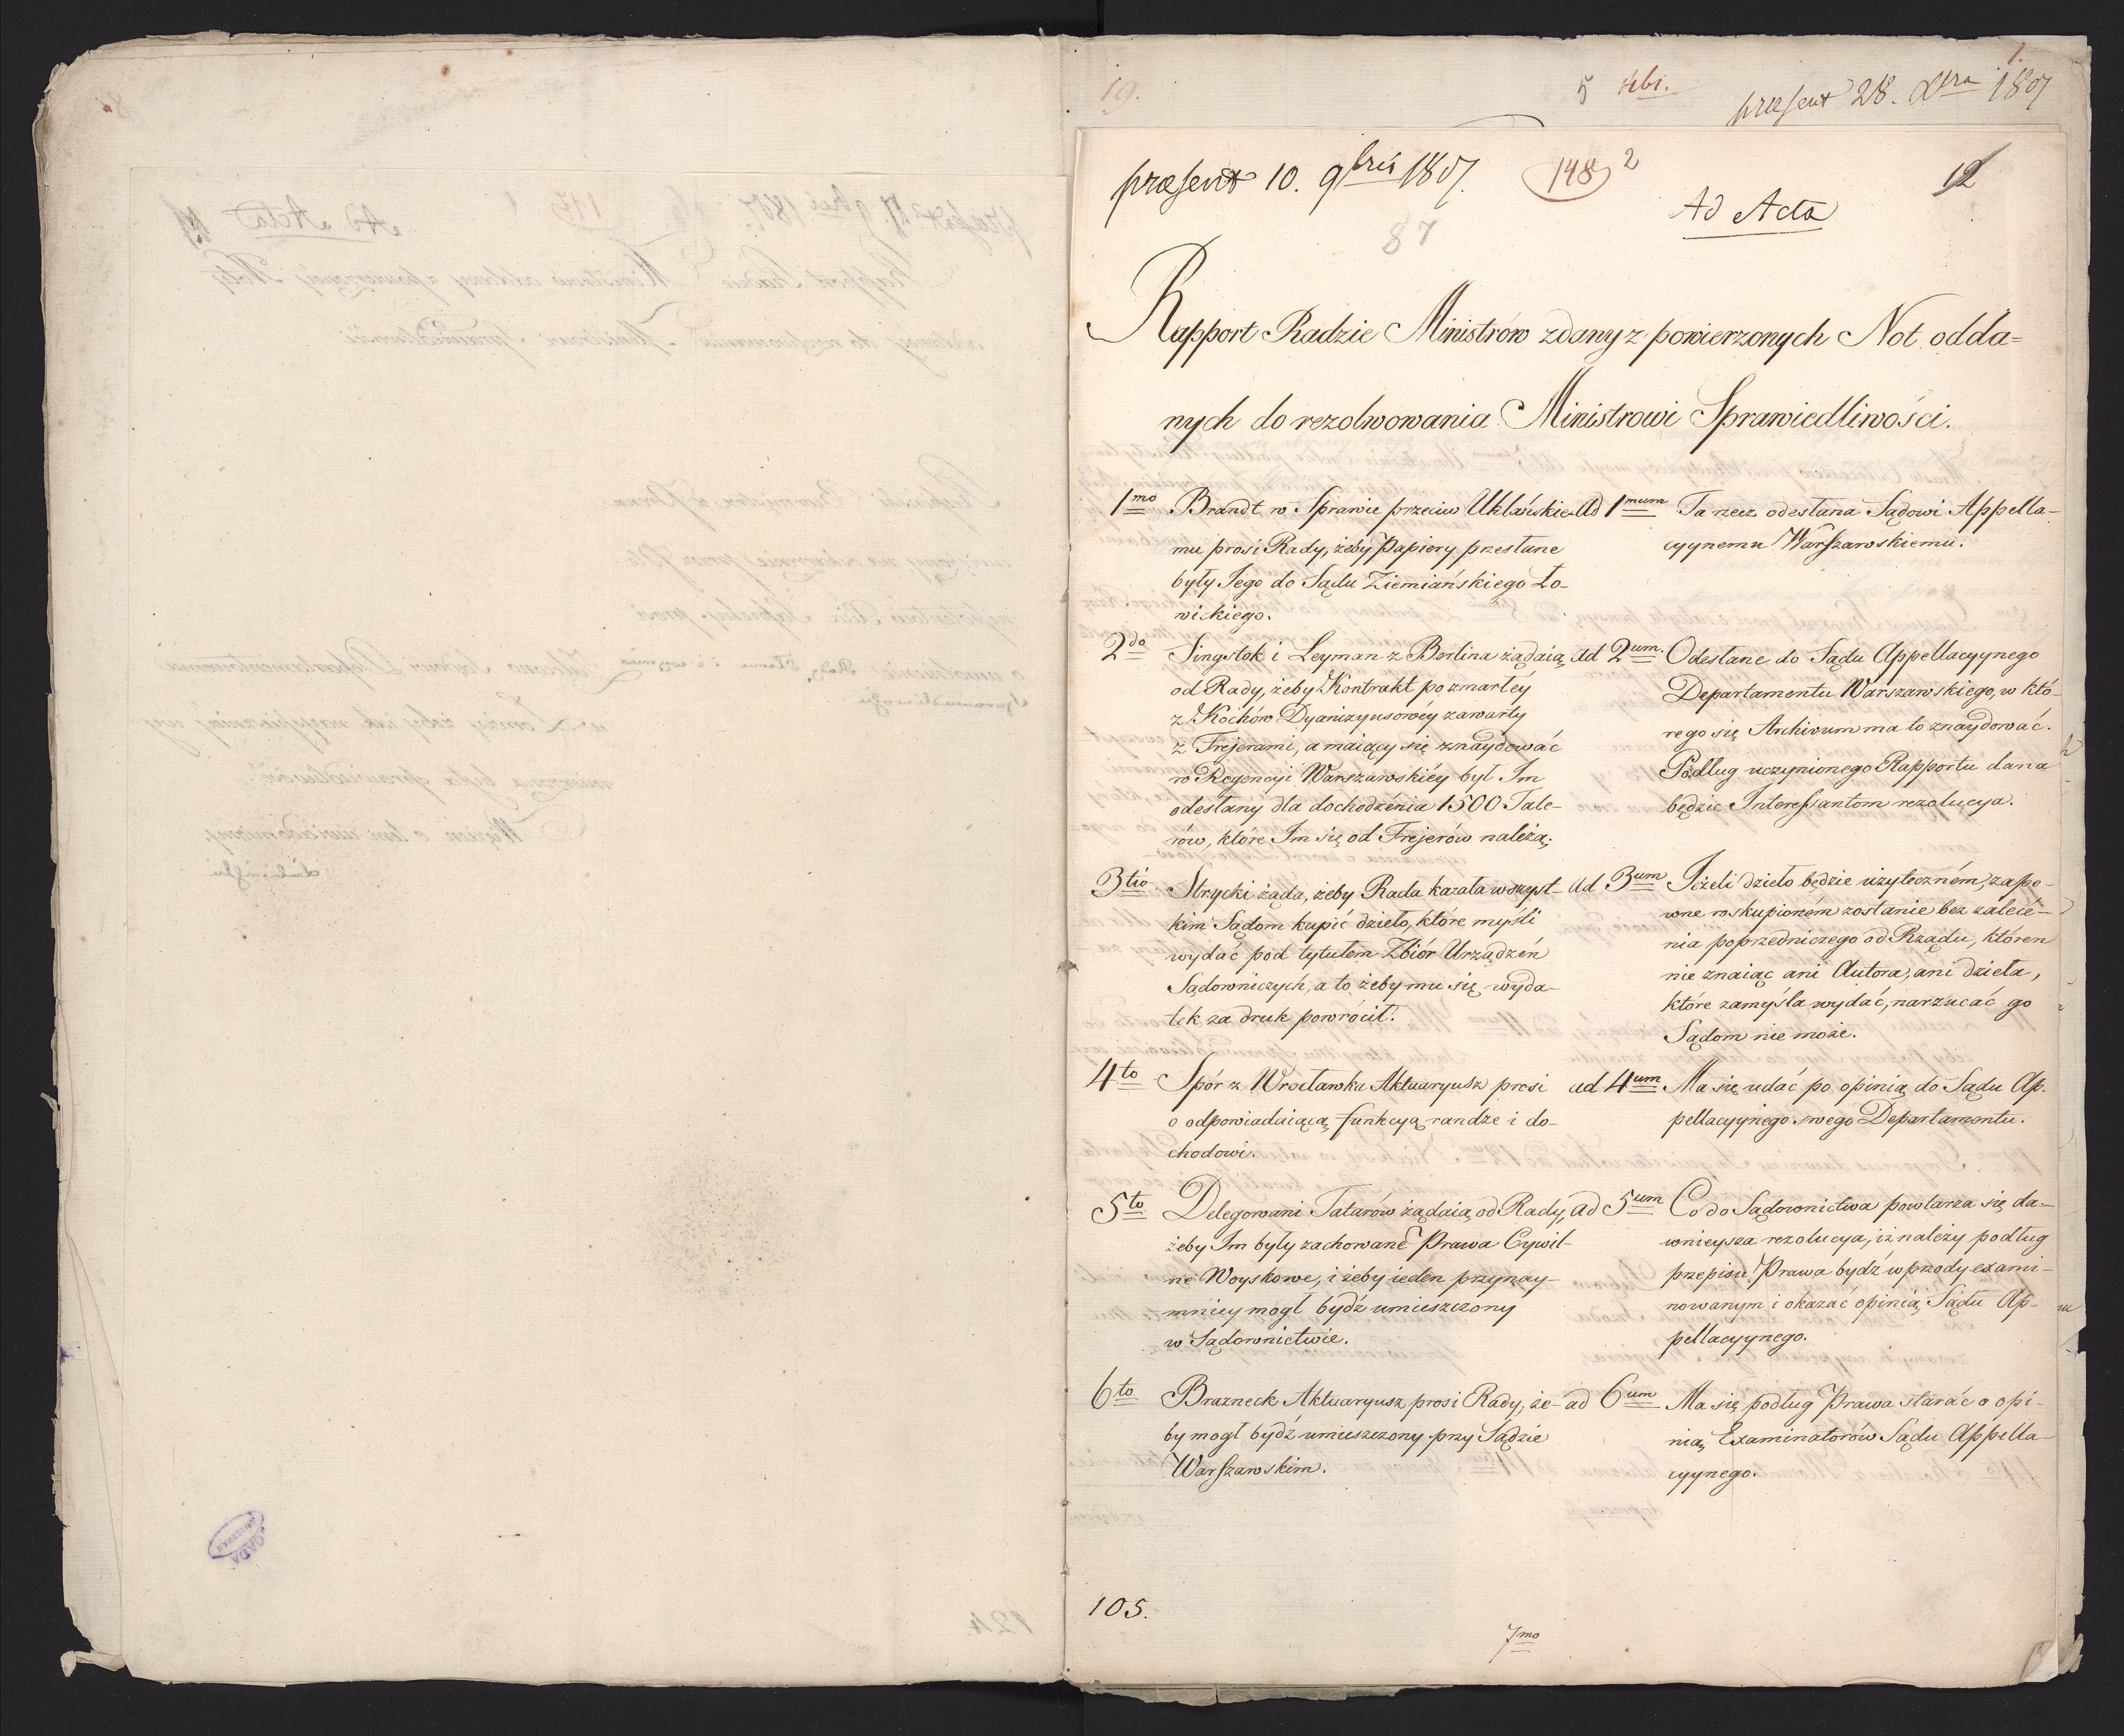 19.
5
praesent 28. Xbra 1807
1.
praesent 10. 9bris 1807.
148
2
12
Ad Acta
87
Rapport Radzie Ministrów zdany z powierzonych Not odda=
nych do rezolwowania Ministrowi Sprawiedliwości.
1mo Brandt w Sprawie przeciw Uklańskie-
mu prosi Rady, żeby Papiery przesłane
były Jego do Sądu Ziemiańskiego Ło-
wickiego.
Ad 1mum Ta rzecz odesłana Sądowi Appella-
cyynemu Warszawskiemu.
2do Singstok i Leyman z Berlina żądaią
od Rady, żeby Kontrakt po zmarłéy
z Kochów Dyanizyusowéy zawarty
z Frejerami, a maiący się znaydować
w Regencyi Warszawskiéy był Im
odesłany dla dochodzénia 1500 Tale-
rów, które Im się od Frejerów należą.
Ad 2um. Odesłane do Sądu Appellacyynego
Departamentu Warszawskiego, w któ-
rego się Archivum ma to znaydować.
Podług uczynionego Rapportu dana
będzie Interessantom rezolucya.
3tio Strycki żąda, żeby Rada kazała wszyst-
kim Sądom kupić dzieło, które myśli
wydać pod tytułem Zbiór Urządzéń
Sądowniczych, a to żeby mu się wyda-
tek za druk powrócił.
Ad 3um Jeżeli dzieło będzie użyteczném, zape-
wne roskupioném zostanie bez zalecé-
nia poprzedniczego od Rządu, któren
nie znaiąc ani Autora, ani dzieła,
które zamyśla wydać, narzucać go
Sądom nie może.
4to Spór z Wrocławka Aktuaryusz prosi
o odpowiadaiącą funkcyą randze i do-
chodowi.
ad 4um Ma się udać po opinią do Sądu Ap-
pellacyynego swego Departamentu.
5to Delegowani Tatarów żądaią od Rady,
żeby Im były zachowane Prawa Cywil-
ne Woyskowe, i żeby ieden przynay-
mniey mogł bydź umieszczony
w Sądownictwie.
ad 5um Co do Sądownictwa powtarza się da-
wnieysza rezolucya, iż należy podług
przepisu Prawa bydź wprzody exami-
nowanym i okazać opinią Sądu Ap-
pellacyynego.
6to Brazneck Aktuaryusz prosi Rady, że-
by mogł bydź umieszczony przy Sądzie
Warszawskim.
ad 6um Ma się podług Prawa starać o opi-
nią Examinatorów Sądu Appella-
cyynego.
105.
7mo